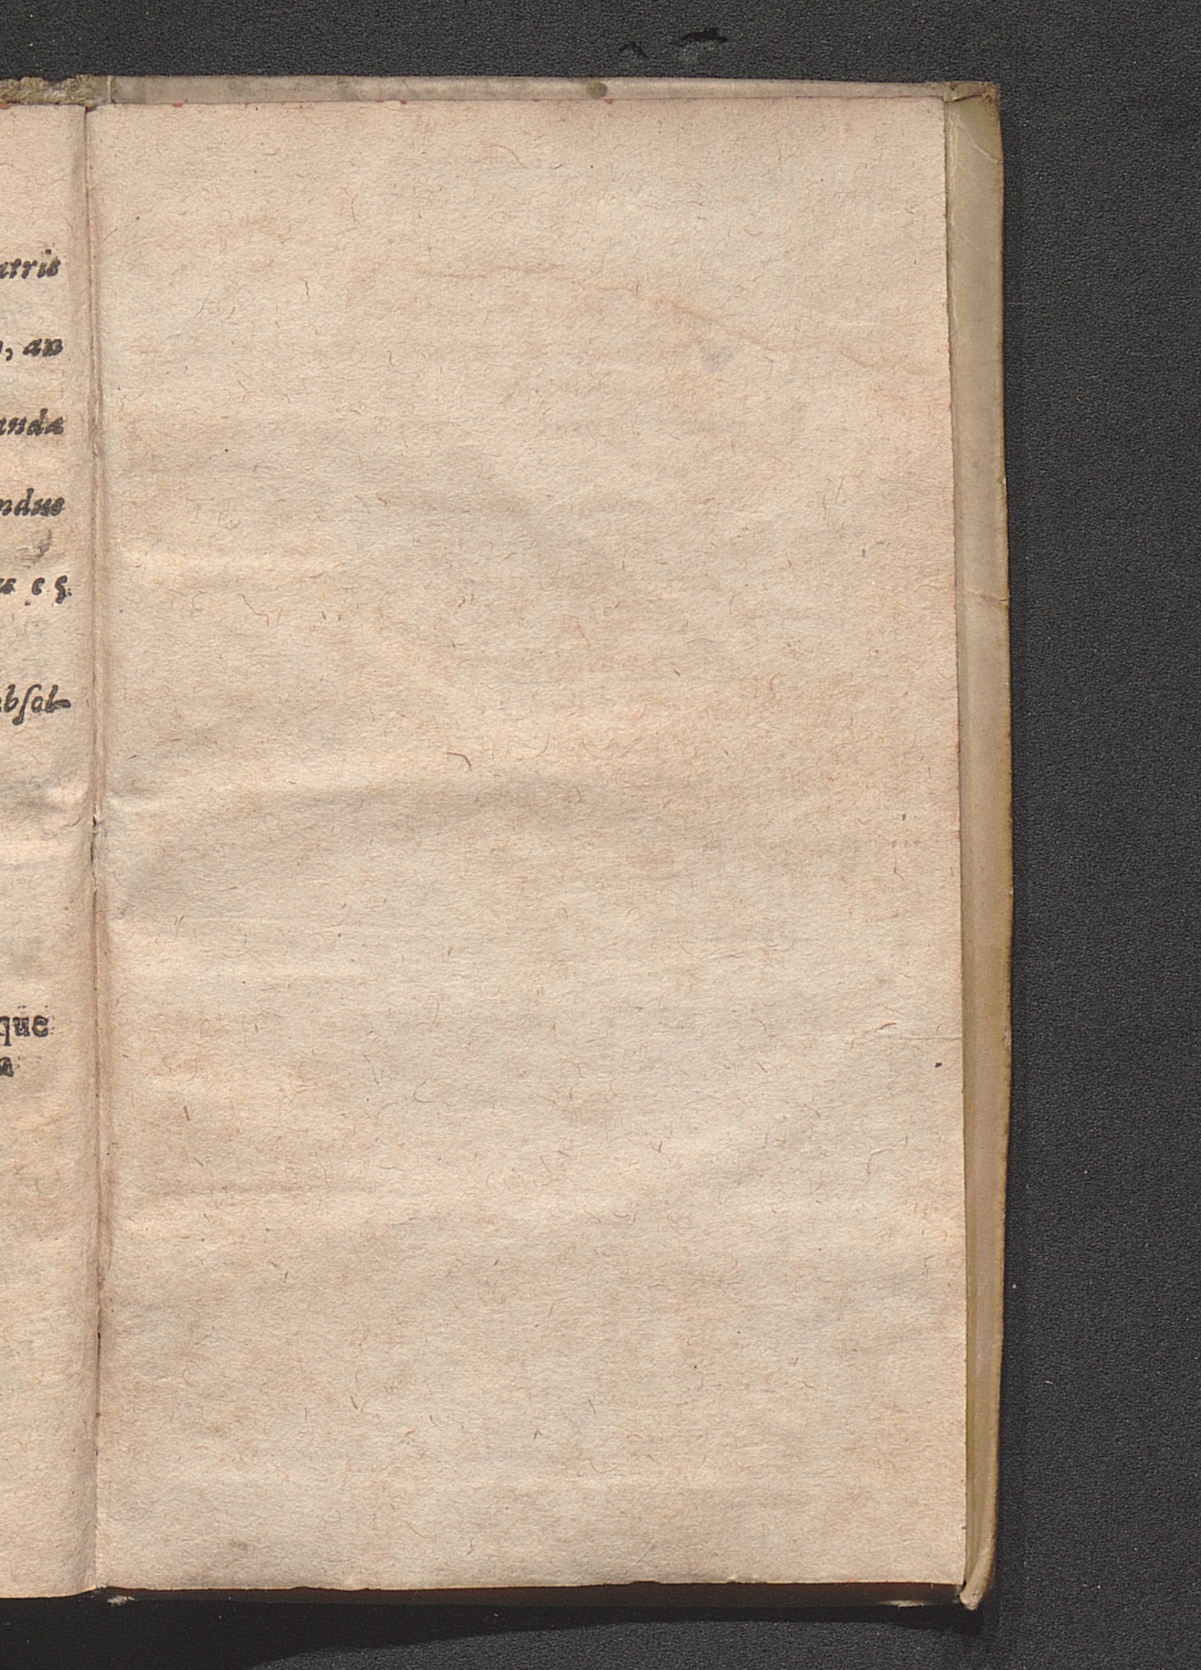 atris
, an
anda
ndus
us es
absol-
que
a